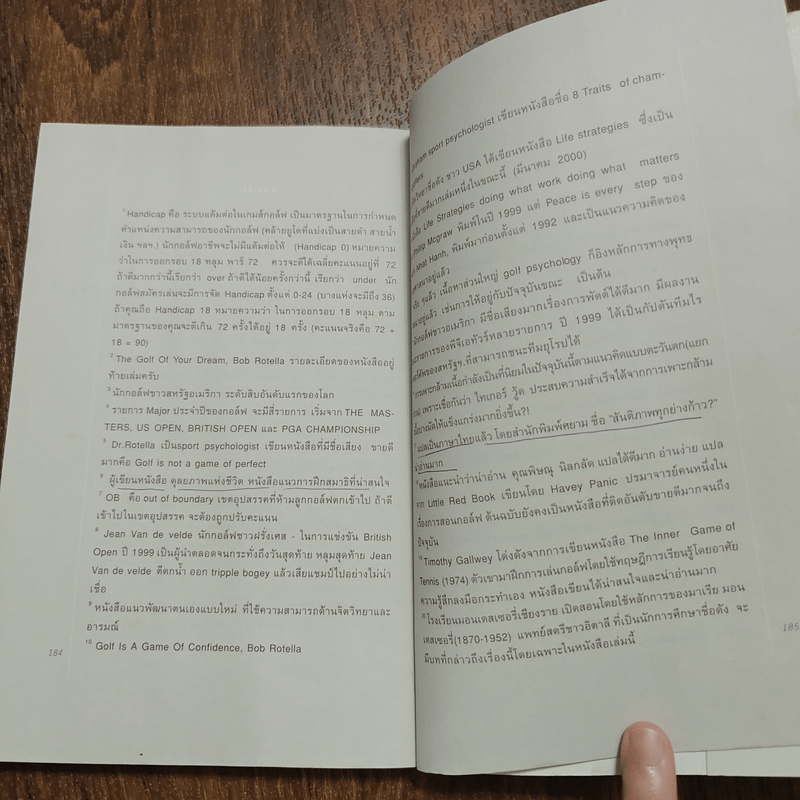 เชิงอรรถ
1 Handicap คือ ระบบแต้มต่อในเกมส์กอล์ฟ เป็นมาตรฐานในการกำหนด
ตำแหน่งความสามารถของนักกอล์ฟ (คล้ายยูโดที่แบ่งเป็นสายดำ สายน้ำ
เงิน ฯลฯ.) นักกอล์ฟอาชีพจะไม่มีแต้มต่อให้ (Handicap 0) หมายความ
ว่าในการออกรอบ 18 หลุม พาร์ 72 ควรจะตีได้เฉลี่ยคะแนนอยู่ที่ 72
ถ้าตีมากกว่านี้เรียกว่า over ถ้าตีได้น้อยครั้งกว่านี้ เรียกว่า under นัก
กอล์ฟสมัครเล่นจะมีการจัด Handicap ตั้งแต่ 0-24 (บางแห่งจะมีถึง 36)
ถ้าคุณถือ Handicap 18 หมายความว่า ในการออกรอบ 18 หลุม ตาม
มาตรฐานของคุณจะตีเกิน 72 ครั้งได้อยู่ 18 ครั้ง (คะแนนจริงคือ 72 +
18 = 90)
2 The Golf Of Your Dream, Bob Rotella รายละเอียดของหนังสืออยู่
ท้ายเล่มครับ
3 นักกอล์ฟชาวสหรัฐอเมริกา ระดับสิบอันดับแรกของโลก
4 รายการ Major ประจำปีของกอล์ฟ จะมีสี่รายการ เริ่มจาก THE MAS-
TERS, US OPEN, BRITISH OPEN และ PGA CHAMPIONSHIP
5 Dr.Rotella เป็นsport psychologist เขียนหนังสือที่มีชื่อเสียง ขายดี
มากคือ Golf is not a game of perfect
6 ผู้เขียนหนังสือ ดุลยภาพแห่งชีวิต หนังสือแนวการฝึกสมาธิที่น่าสนใจ
7 OB คือ out of boundary เขตอุปสรรคที่ห้ามลูกกอล์ฟตกเข้าไป ถ้าตี
เข้าไปในเขตอุปสรรค จะต้องถูกปรับคะแนน
8 Jean Van de velde นักกอล์ฟชาวฝรั่งเศส - ในการแข่งขัน British
Open ปี 1999 เป็นผู้นำตลอดจนกระทั่งถึงวันสุดท้าย หลุมสุดท้าย Jean
Van de velde ตีตกน้ำ ออก tripple bogey แล้วเสียแชมป์ไปอย่างไม่น่า
เชื่อ
9 หนังสือแนวพัฒนาตนเองแบบใหม่ ที่ใช้ความสามารถด้านจิตวิทยาและ
อารมณ์
10 Golf Is A Game Of Confidence, Bob Rotella
184
sport psychologist เขียนหนังสือชื่อ 8 Traits of cham-
ชื่อดัง ชาว USA ได้เขียนหนังสือ Life strategies ซึ่งเป็น
ขายดีมากเล่มหนึ่งในขณะนี้ (มีนาคม 2000)
Life Strategies doing what work doing what matters
Mcgraw พิมพ์ในปี 1999 แต่ Peace is every step ของ
Hanh, พิมพ์มาก่อนตั้งแต่ 1992 และเป็นแนวความคิดของ
อยู่แล้ว
ๆแล้ว เนื้อหาส่วนใหญ่ golf psychology ก็อิงหลักการทางพุทธ
อยู่แล้ว เช่นการให้อยู่กับปัจจุบันขณะ เป็นต้น
กอล์ฟชาวอเมริกา มีชื่อเสียงมากเรื่องการพัตต์ได้ดีมาก มีผลงาน
รายการของพีจีเอทัวร์หลายรายการ ปี 1999 ได้เป็นกัปตันทีมไร
เดอร์คัพของสหรัฐฯ.ที่สามารถชนะทีมยุโรปได้
การเพาะกล้ามเนื้อกำลังเป็นที่นิยมในปัจจุบันนี้ตามแนวคิดแบบตะวันตก(แยก
เพราะเชื่อกันว่า ไทเกอร์ วู้ด ประสบความสำเร็จได้จากการเพาะกล้าม
ให้แข็งแกร่งมากยิ่งขึ้น?!
แปลเป็นภาษาไทยแล้ว โดยสำนักพิมพ์ศยาม ชื่อ “สันติภาพทุกย่างก้าว?”
น่าอ่านมาก
หนังสือแนะนำว่าน่าอ่าน คุณพิษณุ นิลกลัด แปลได้ดีมาก อ่านง่าย แปล
จาก Little Red Book เขียนโดย Havey Panic ปรมาจารย์คนหนึ่งใน
เรื่องการสอนกอล์ฟ ต้นฉบับยังคงเป็นหนังสือที่ติดอันดับขายดีมากจนถึง
ปัจจุบัน
Timothy Gallwey โด่งดังจากการเขียนหนังสือ The Inner Game of
Tennis (1974) ตัวเขามาฝึกการเล่นกอล์ฟโดยใช้ทฤษฎีการเรียนรู้โดยอาศัย
ความรู้สึกลงมือกระทำเอง หนังสือเขียนได้น่าสนใจและน่าอ่านมาก
โรงเรียนมอนเตสเซอรี่เชียงราย เปิดสอนโดยใช้หลักการของมาเรีย มอน
เตสเซอรี่(1870-1952) แพทย์สตรีชาวอิตาลี ที่เป็นนักการศึกษาชื่อดัง จะ
มีบทที่กล่าวถึงเรื่องนี้โดยเฉพาะในหนังสือเล่มนี้
185